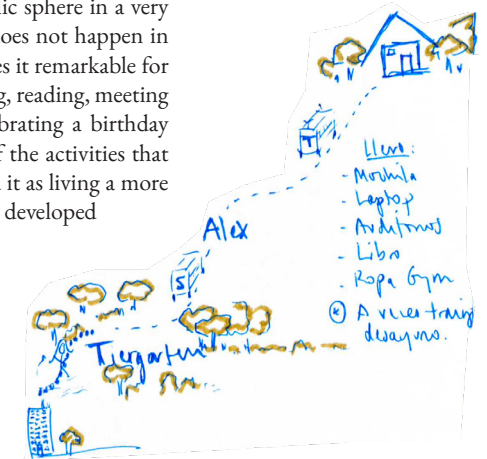 ic sphere in a very
oes not happen in
es it remarkable for
g, reading, meeting
brating a birthday
f the activities that
it as living a more
developed
T
Llevo:
- Mochila
- Laptop
- Audífonos
- Libro
- Ropa Gym
* A veces traigo
desayuno.
Alex
S
Tiergarten